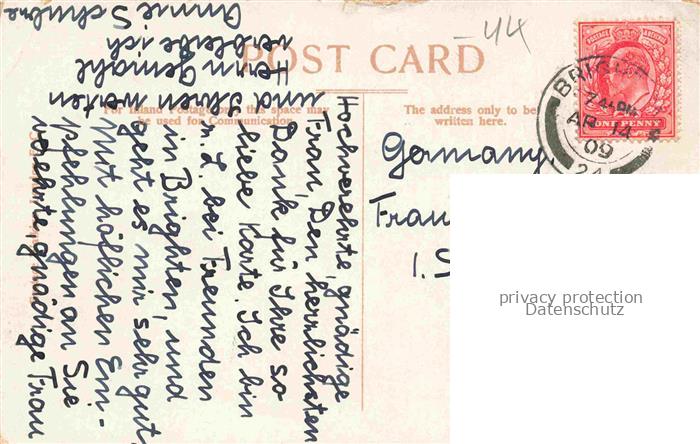 POST CARD
44
For Inland Postage this space may
be used for Communication.
The address only to be
written here.
POSTAGE
ONE PENNY
7 PM
AP 14
09
Germany.
Frau
1. S
Hochverehrte, gnädige
Frau, Den herrlichsten
Dank für Ihre so
liebe Karte. Ich bin
z. Z. bei Freunden
in Brighton, und
geht es mir sehr gut,
Mit höflichen Em-
pfehlungen an Sie
verehrte, gnädige Frau
und Ihren werten
Herrn Gemahl
verbleibe ich
Annie
privacy protection
Datenschutz